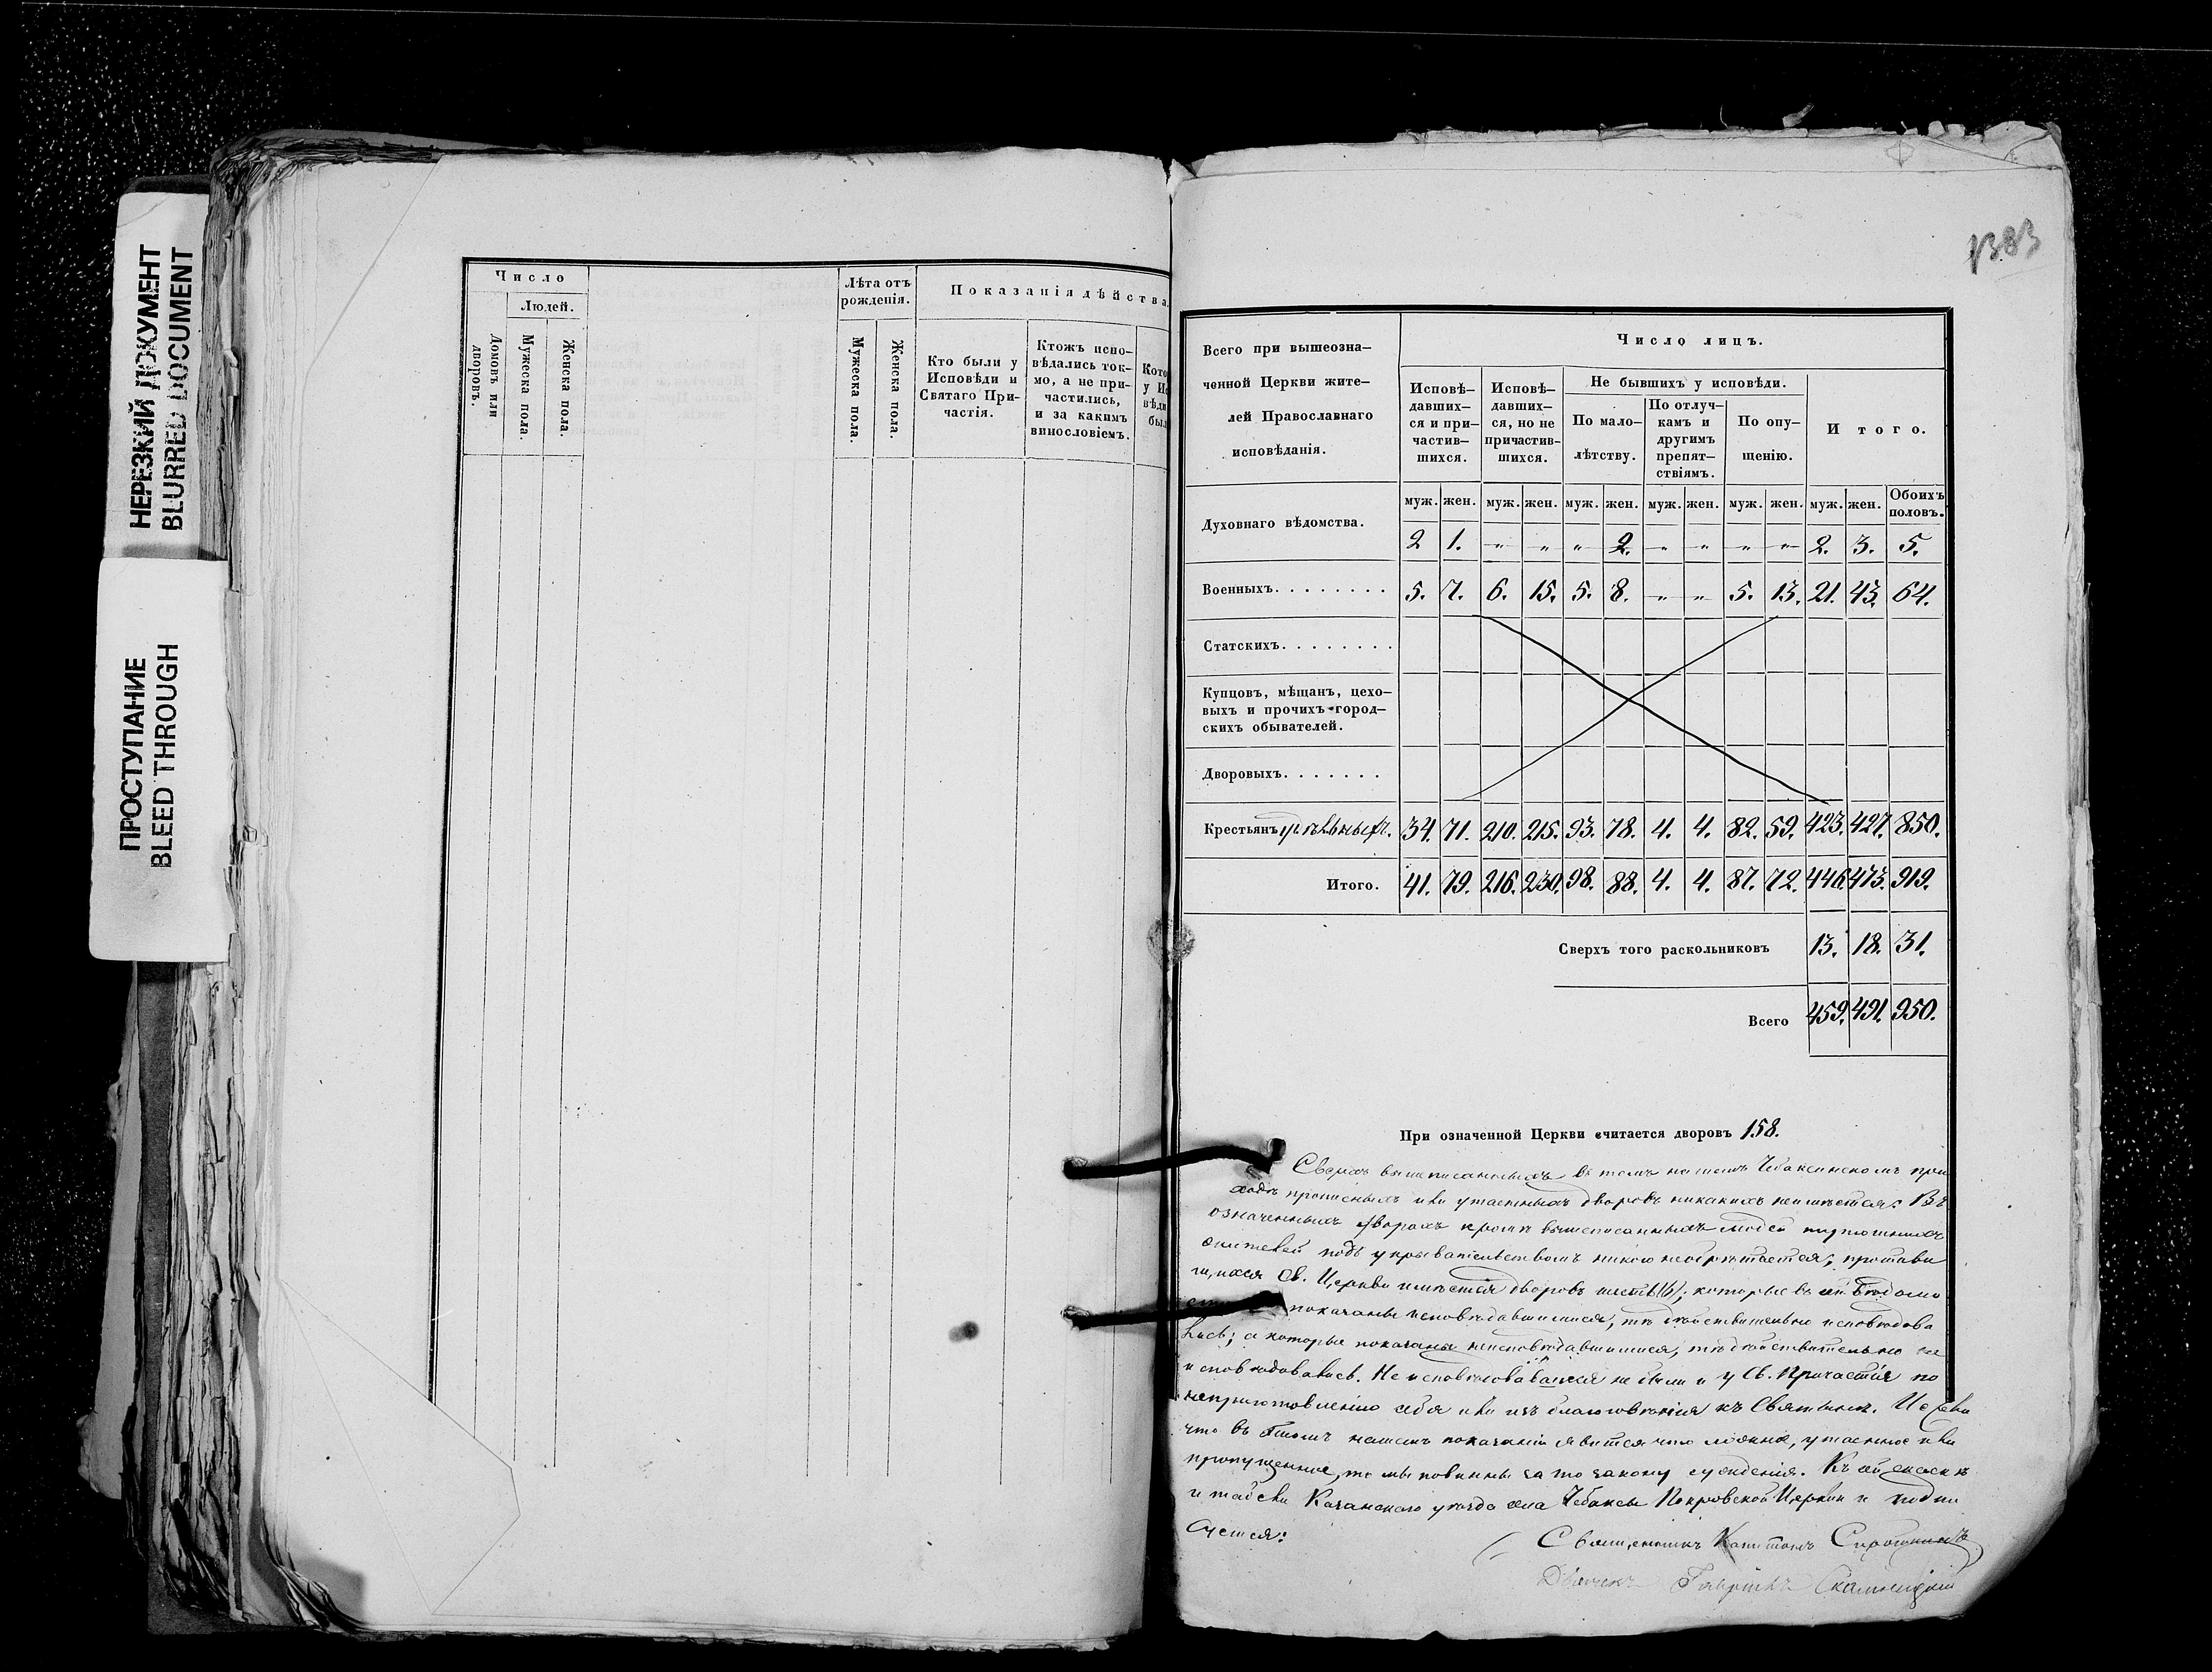 НЕРЕЗКИЙ ДОКУМЕНТ
BLURRED DOCUMENT
ПРОСТУПАНИЕ
BLEED THROUGH
Число
Людей.
Домовъ или дворовъ.
Мужеска пола.
Женска пола.
Лѣта отъ
рожденія.
Мужеска пола.
Женска пола.
Показанія дѣйства.
Кто были у
Исповѣди и
Святаго При-
частія.
Ктожъ испо-
вѣдались ток-
мо, а не при-
частились,
и за какимъ
винословіемъ.
1383
Всего при вышеозна-
ченной Церкви жите-
лей Православнаго
исповѣданія.
Число лицъ.
Исповѣ-
давших-
ся и при-
частив-
шихся.
Исповѣ-
давших-
ся, но не
причастив-
шихся.
Не бывшихъ у исповѣди.
По мало-
лѣтству.
По отлуч-
камъ и
другимъ
препят-
ствіямъ.
По опу-
щенію.
Итого.
муж. жен. муж. жен. муж. жен. муж. жен. муж. жен. муж. жен. Обоихъ половъ.
Духовнаго вѣдомства. 2 1. „ „ „ 2. „ „ „ „ 2. 3. 5.
Военныхъ. . . . . . . . 5. 7. 6. 15. 5. 8. „ „ 5. 13. 21. 43. 64.
Статскихъ. . . . . . . .
Купцовъ, мѣщанъ, цехо-
выхъ и прочихъ город-
скихъ обывателей.
Дворовыхъ. . . . . . .
Крестьянъ удѣльныхъ. 34. 71. 210. 215. 93. 78. 4. 4. 82. 59. 423. 427. 850.
Итого. 41. 79. 216. 230. 98. 88. 4. 4. 87. 72. 446. 473. 919.
Сверхъ того раскольниковъ 13. 18. 31.
Всего 459. 491. 950.
При означенной Церкви считается дворовъ 158.
Сверхъ вышеписанныхъ въ томъ нашемъ Чебаксинскомъ при
ходѣ прописныхъ или утаенныхъ дворовъ никакихъ неимѣется. Въ
означенныхъ дворахъ кромѣ вышеписанныхъ людей
жителей подъ укрывательствомъ никого необрѣтается; противя
щихся Св. Церкви имѣется дворовъ шесть (6); которые въ сей вѣдомо
показаны исповѣдавшимися, тѣ дѣйствительно исповѣдова
лись; а которые показаны неисповѣдавшимися, тѣ дѣйствительно не
исповѣдовались. не были и у Св. Причастія по
неприготовленію себя или изъ благоговѣнія къ Святынѣ. И если
что въ семъ нашемъ показаніи явится что ложно, утаенное или
пропущенное, то мы повинны за то закону сужденія. Къ сей
Казанскаго уѣзда села Чебаксы Покровской Церкви и подпи
суемся:
Священникъ Капитонъ
Дьячекъ Гавріилъ